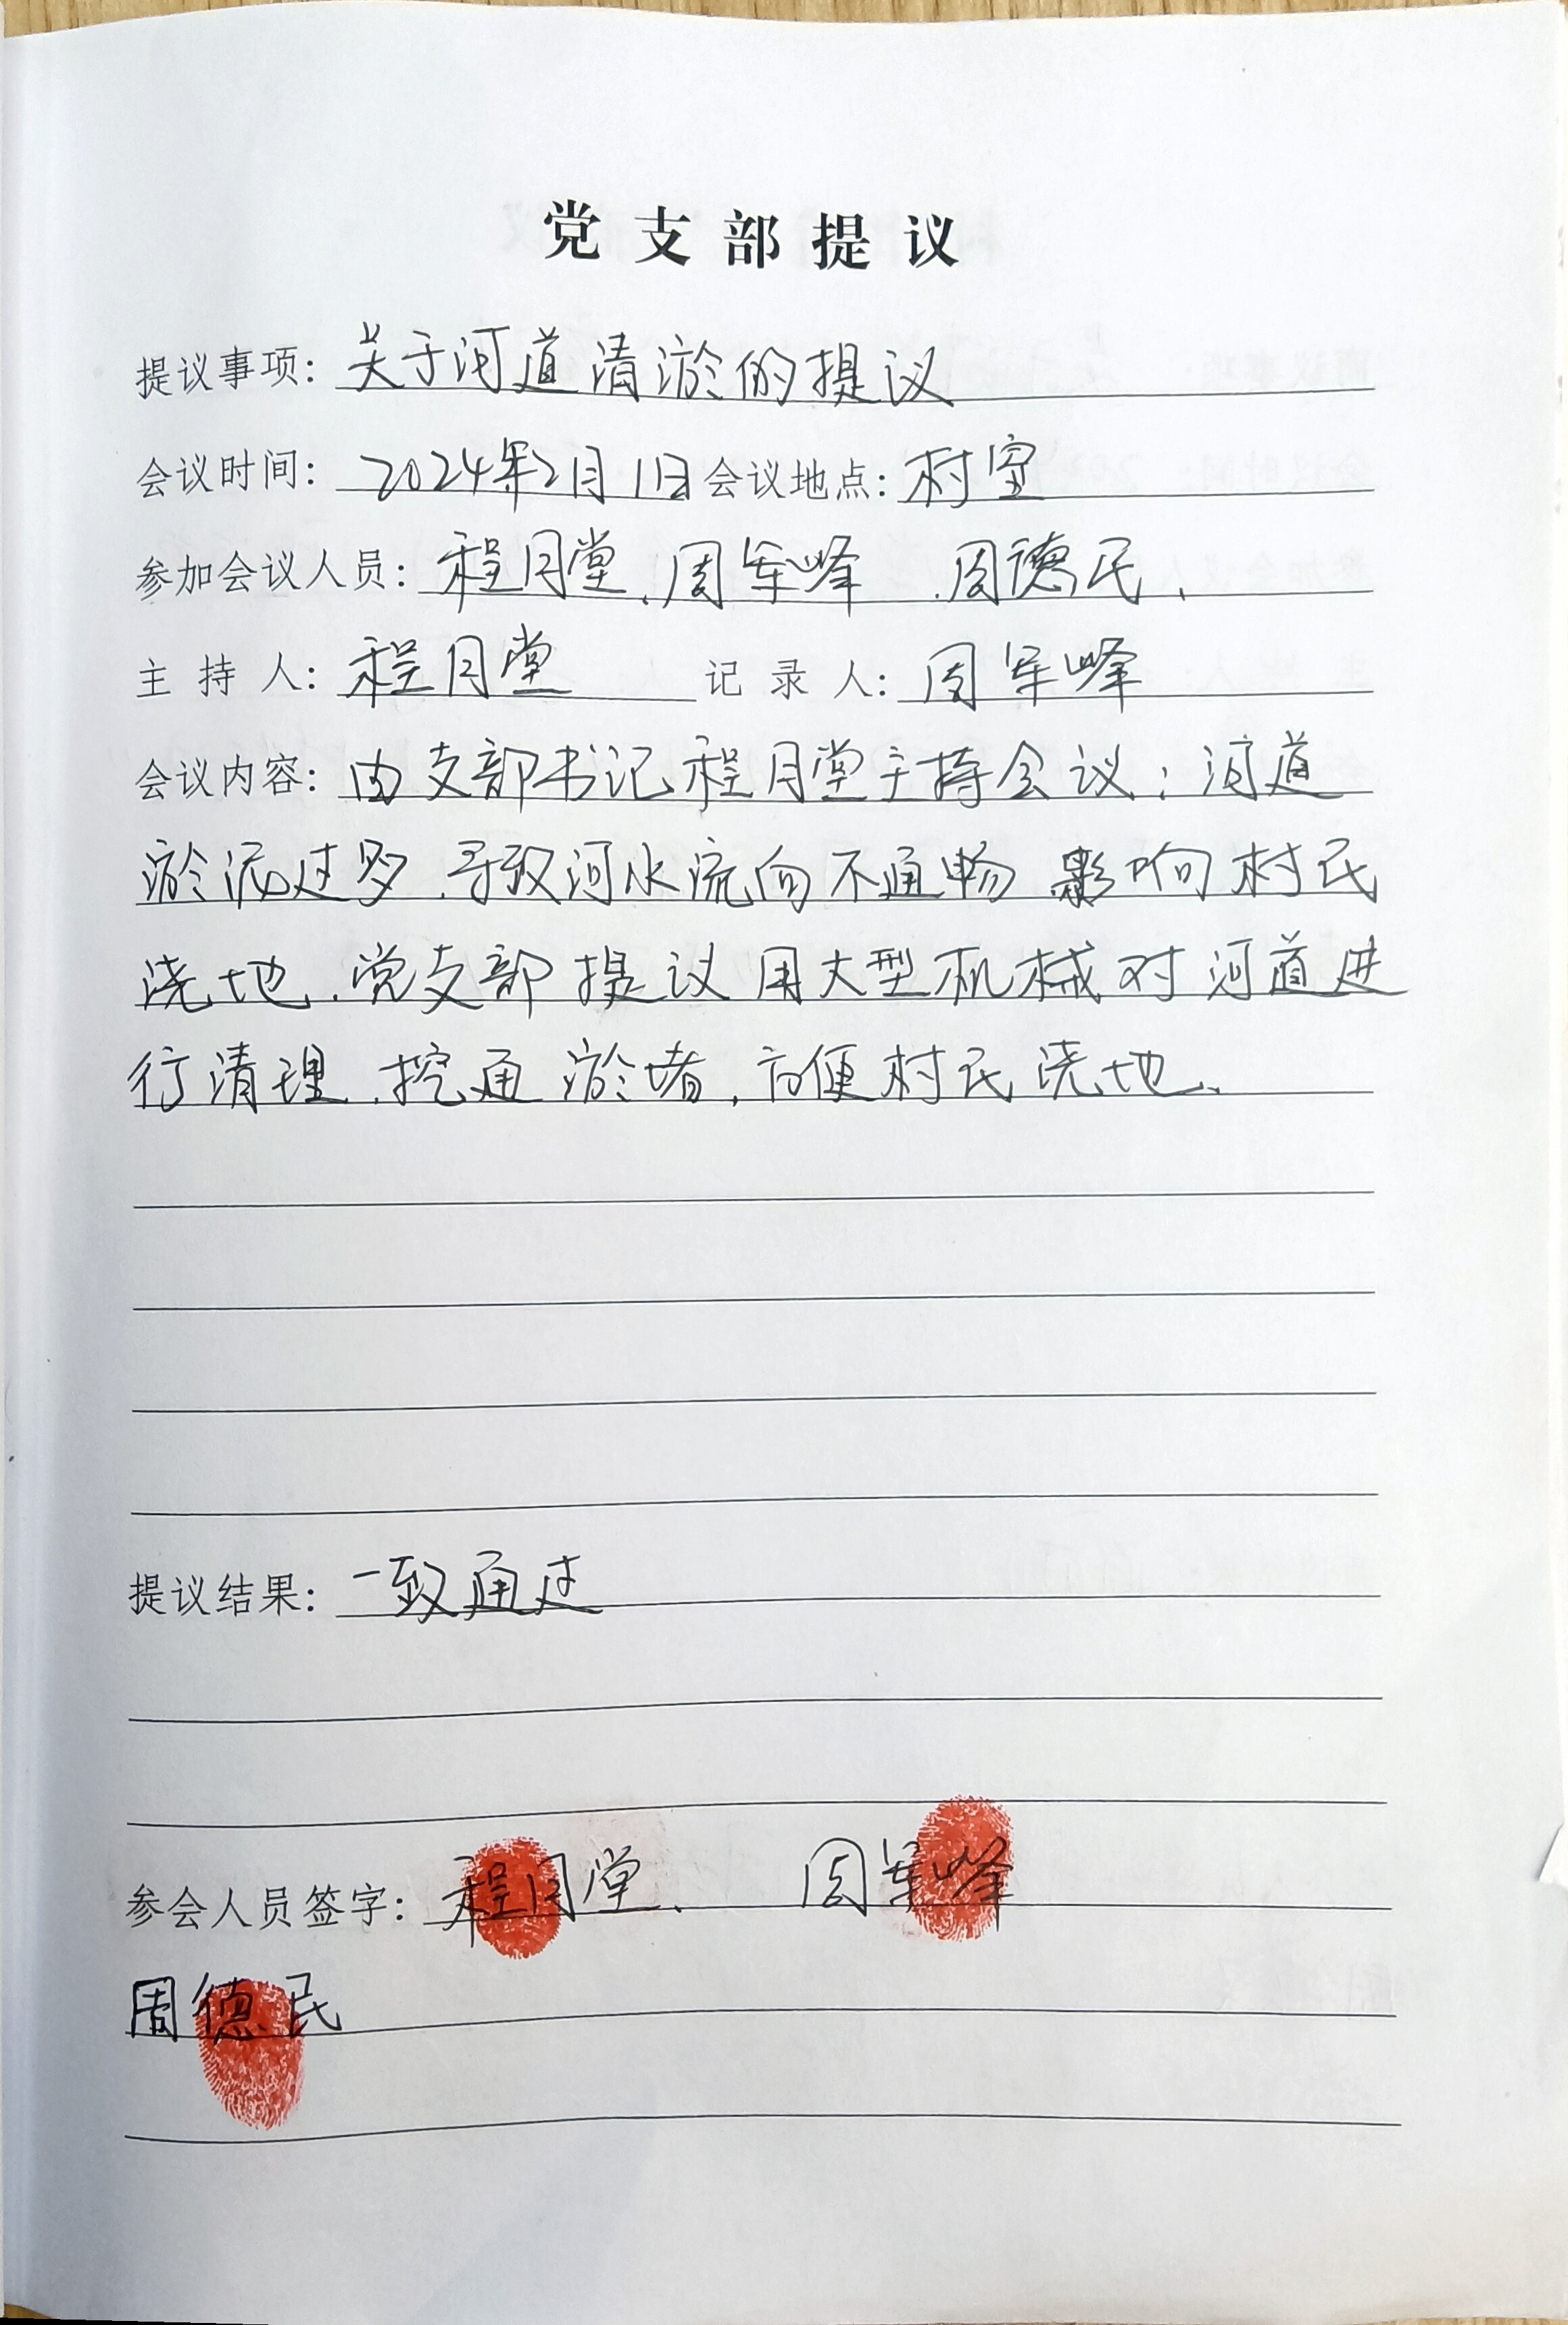 党支部提议
提议事项：关于河道清淤的提议
会议时间：2024年2月1日会议地点：村室
参加会议人员：程月堂、周军峰、周德民、
主持人：程月堂 记录人：周军峰
会议内容：由支部书记程月堂主持会议：河道
淤泥过多，导致河水流向不通畅 影响村民
浇地，党支部提议用大型机械对河道进
行清理，挖通淤堵，方便村民浇地、
提议结果：一致通过
参会人员签字：程月堂、 周军峰
周德民